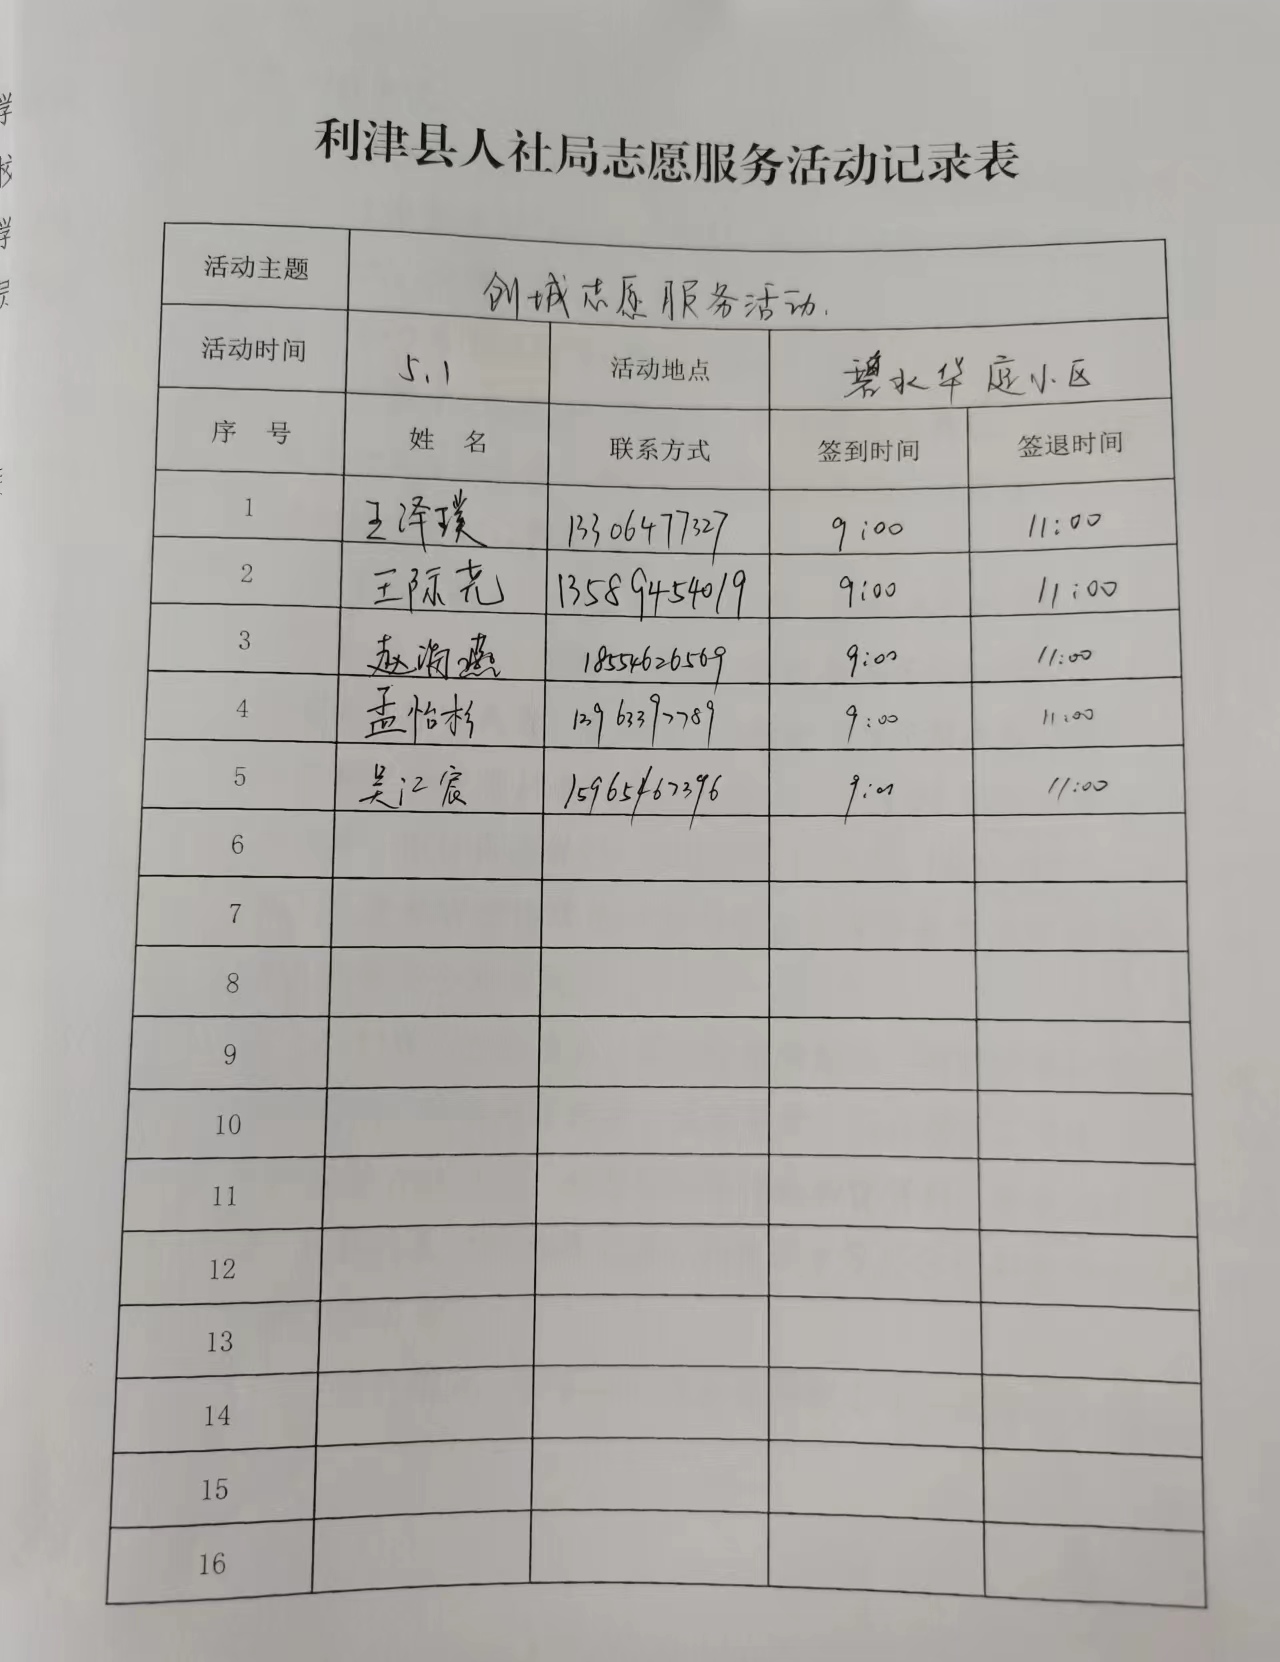 学
校
学
利津县人社局志愿服务活动记录表
活动主题 创城志愿服务活动.
活动时间 5.1 活动地点 碧水华庭小区
序 号 姓 名 联系方式 签到时间 签退时间
1 王泽璞 13306477327 9:00 11:00
2 王际尧 13589454019 9:00 11:00
3 赵海燕 18554626569 9:00 11:00
4 孟怡杉 13963397789 9:00 11:00
5 吴江宸 15965467396 9:00 11:00
6
7
8
9
10
11
12
13
14
15
16